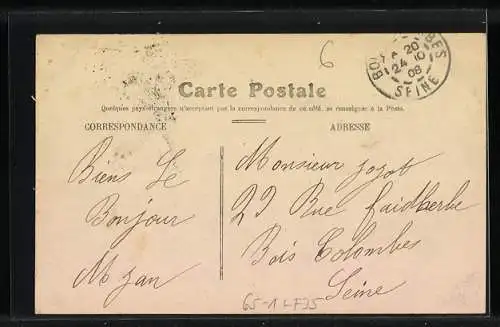 6
20
24 10
08
SEINE
Carte Postale
Quelques pays étrangers n'acceptant pas la correspondance de ce côté, se renseigner à la Poste.
CORRESPONDANCE
ADRESSE
Biens Le
Bonjour
M Jan
Monsieur Jozot
22 Rue faidherbe
Bois Colombes
Seine
65-1 LF35